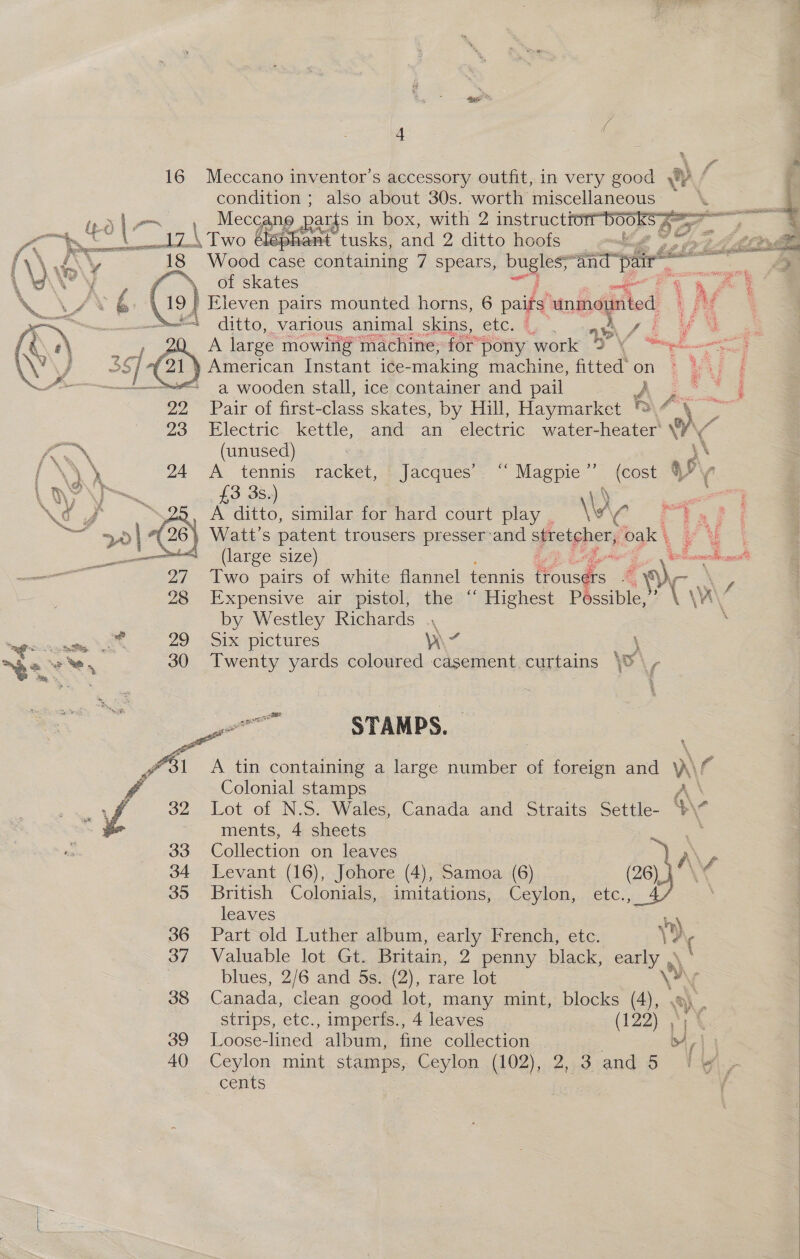 4
16 Meccano inventor's accessory outfit, in very good
condition ; also about 30s. worth miscellaneous
Meccano parts in box, with 2 instruction books
17 Two elephant tusks, and 2 ditto hoofs
18 Wood case containing 7 spears, bugles, and pair
of skates
19 Eleven pairs mounted horns, 6 pairs unmounted
ditto, various animal skins, etc.
20 A large mowing machine, for pony work
21 American Instant ice-making machine, fitted on
a wooden stall, ice container and pail
22 Pair of first-class skates, by Hill, Haymarket
23 Electric kettle, and an electric water-heater
(unused)
24 A tennis racket, Jacques' “ Magpie ” (cost
£3 3s.)
25 A ditto, similar for hard court play
26 Watt's patent trousers presser and stretcher, oak
(large size)
27 Two pairs of white flannel tennis trousers
28 Expensive air pistol, the “ Highest Possible,”
by Westley Richards
29 Six pictures
30 Twenty yards coloured casement curtains
STAMPS.
31 A tin containing a large number of foreign and
Colonial stamps
32 Lot of N.S. Wales, Canada and Straits Settle-
ments, 4 sheets
33 Collection on leaves
34 Levant (16), Johore (4), Samoa (6) (26)
35 British Colonials, imitations, Ceylon, etc., 4
leaves
36 Part old Luther album, early French, etc.
37 Valuable lot Gt. Britain, 2 penny black, early
blues, 2/6 and 5s. (2), rare lot
38 Canada, clean good lot, many mint, blocks (4),
strips, etc., imperfs., 4 leaves (122)
39 Loose-lined album, fine collection
40 Ceylon mint stamps, Ceylon (102), 2, 3 and 5
cents